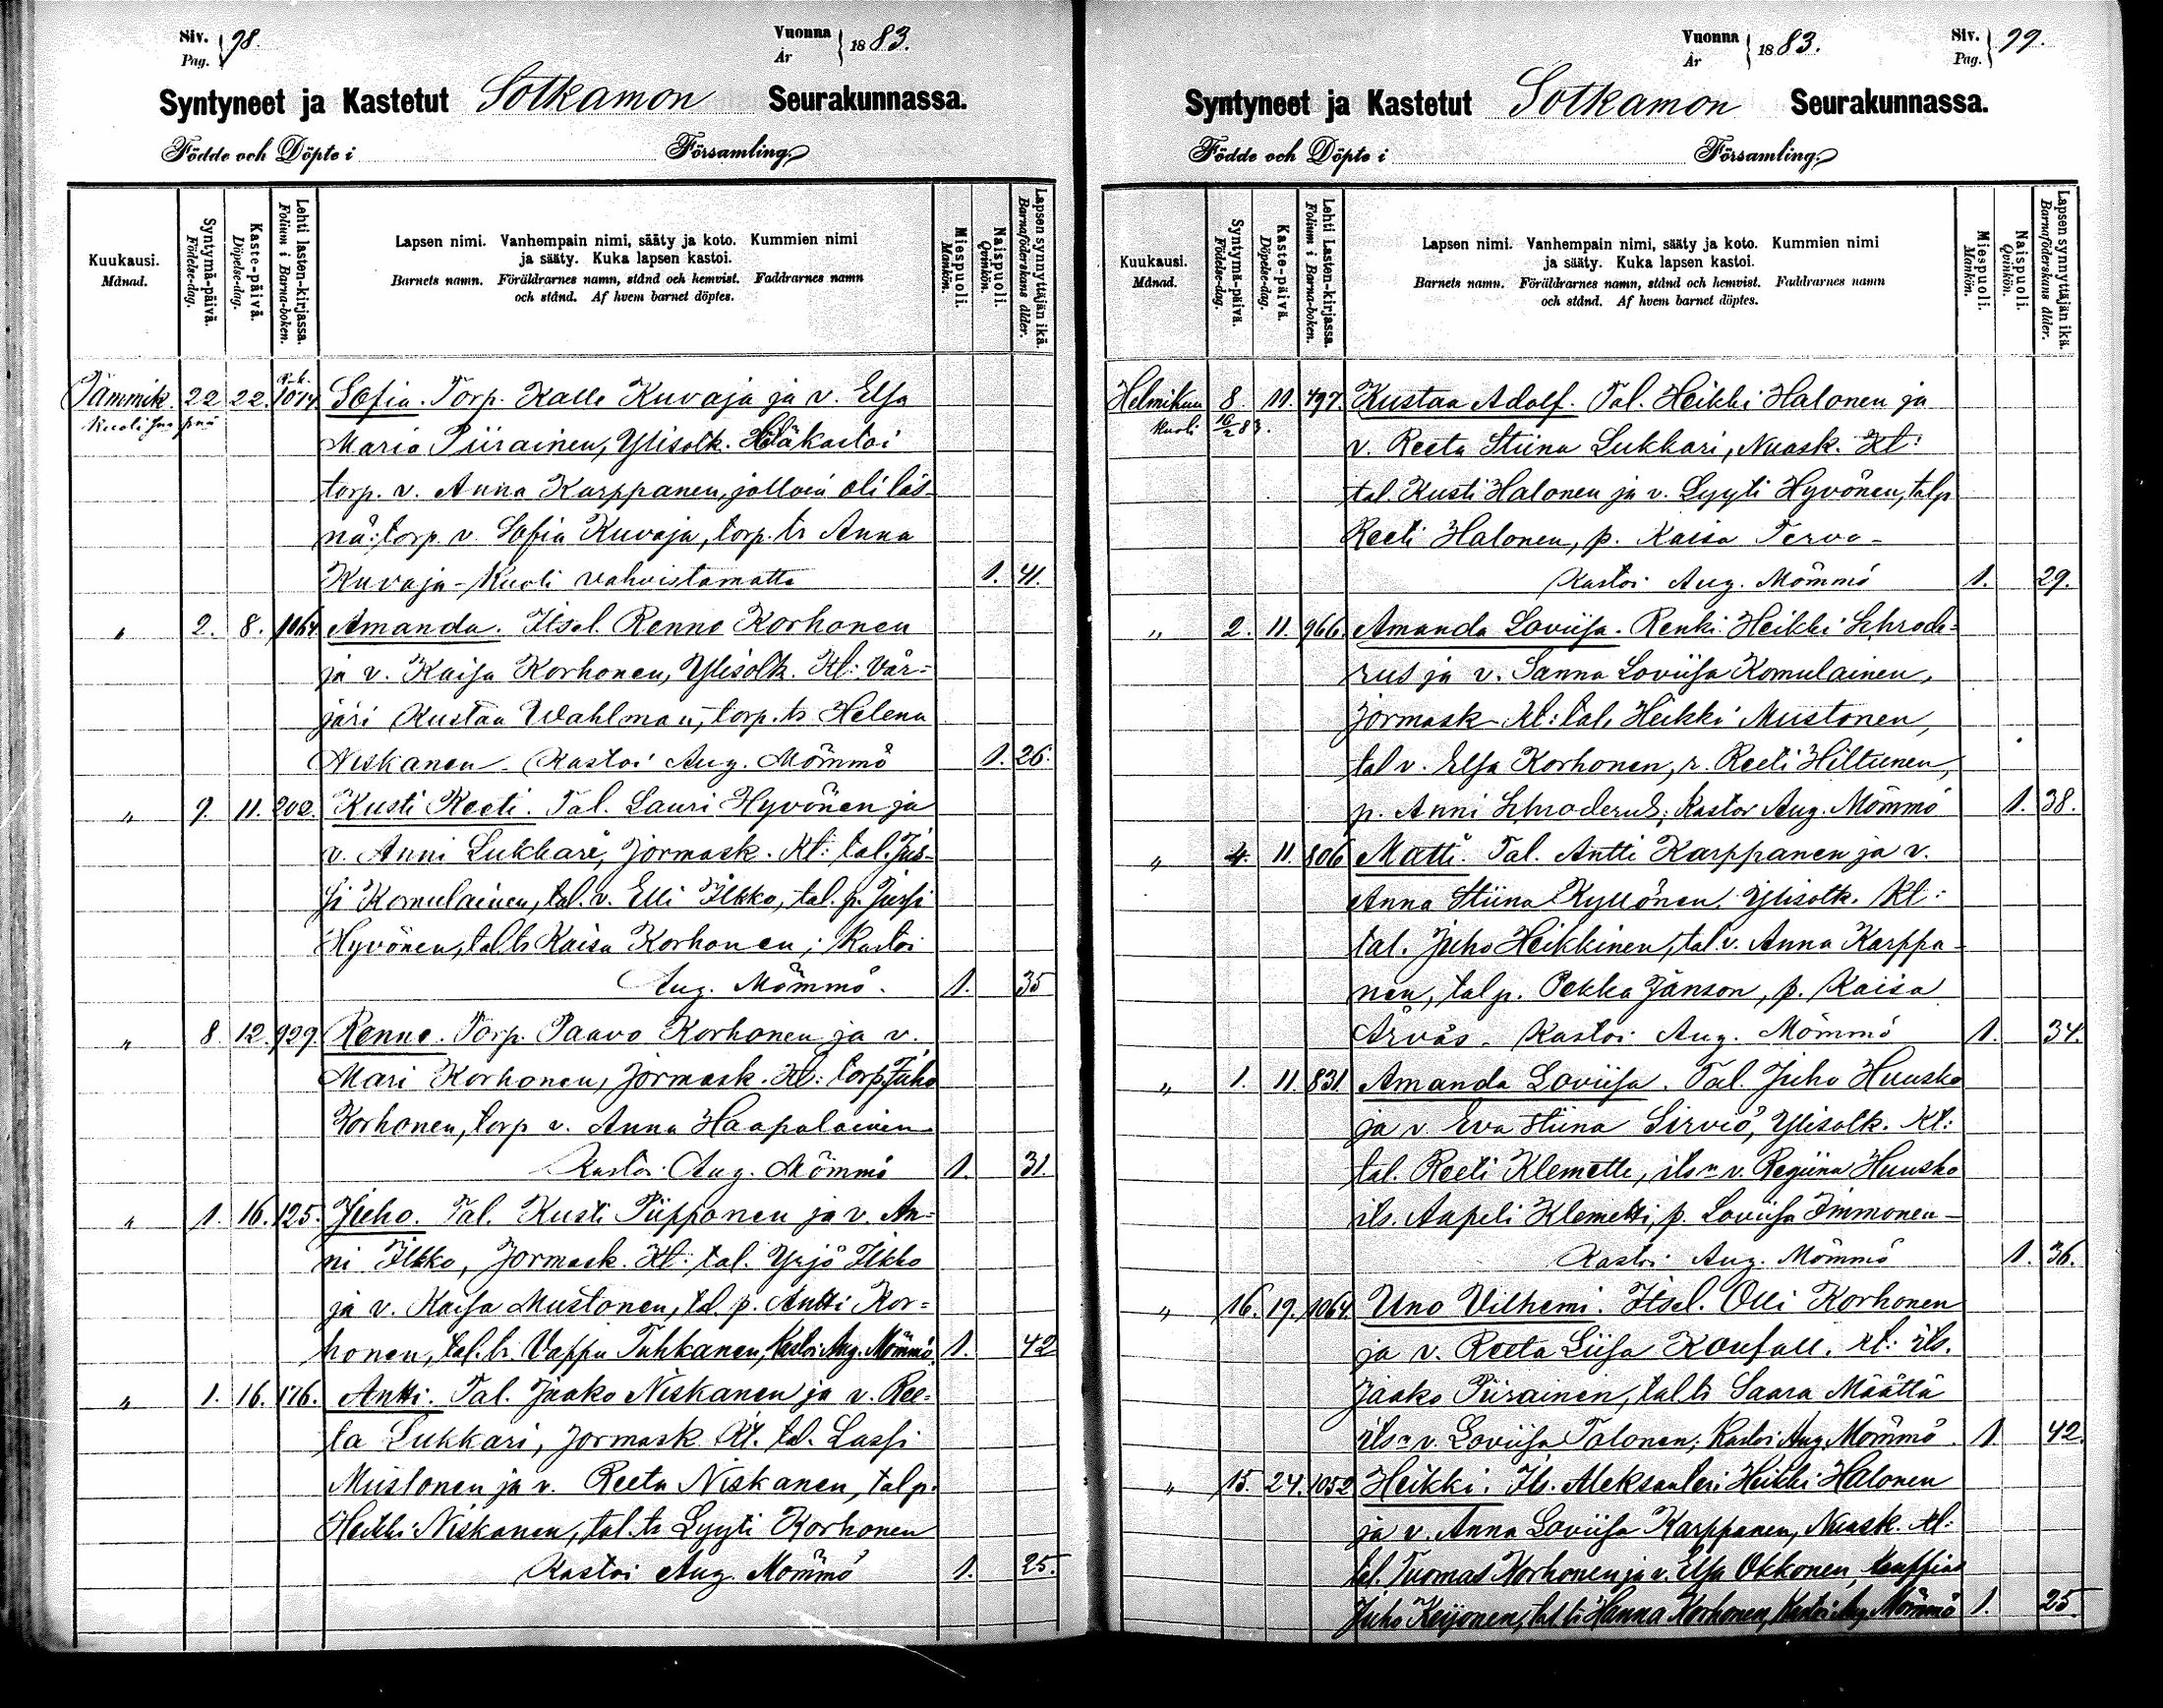 Siv. 98.
Pag.
Vuonna 1883.
År
Syntyneet ja Kastetut Sotkamon Seurakunnassa.
Födde och Döpte i Församling.
Kuukausi.
Månad.
Syntymä-päivä.
Födelse-dag.
Kaste-päivä.
Döpelse-dag.
Lehti lasten-kirjassa.
Folium i Barna-boken.
Lapsen nimi. Vanhempain nimi, sääty ja koto. Kummien nimi
ja sääty. Kuka lapsen kastoi.
Barnets namn. Föräldrarnes namn, stånd och hemvist. Faddrarnes namn
och stånd. Af hvem barnet döptes.
Miespuoli.
Mankön.
Naispuoli.
Qvinkön.
Lapsen synnyttäjän ikä.
Barnaföderskans ålder.
Tammik. 22 22. R.k. 1014. Sofia. Torp. Kalle Kuvaja ja v. Elsa
Kuoli
Maria Piirainen, Ylisotk. Hätäkastoi
torp. v. Anna Karppanen, jolloin oli läs-
nä: torp. v. Sofia Kuvaja, torp. tr Anna
Kuvaja - Kuoli vahvistamatta 1. 41.
" 2. 8. 1064 Amanda. Itsel. Renne Korhonen
ja v. Kaisa Korhonen, Ylisotk. Kt: Vär-
järi Kustaa Wahlman, torp. tr Helena
Niskanen - Kastoi Aug. Mömmö 1. 26.
" 9. 11. 202. Kusti Reeti. Tal. Lauri Hyvönen ja
v. Anni Lukkari, Jormask. Kt: tal. Jus-
si Komulainen, tal. v. Elli Ilkko, tal. p. Jussi
Hyvönen, tal. tr Kaisa Korhonen; Kastoi
Aug. Mömmö. 1. 35
" 8. 12. 929. Renne. Torp. Paavo Korhonen ja v.
Mari Korhonen, Jormask. Kt: torp. Juho
Korhonen, torp v. Anna Haapalainen
Kastoi Aug. Mömmö 1. 31.
" 1. 16. 125. Juho. Tal. Kusti Piipponen ja v. An-
ni Ilkko, Jormask. Kt: tal. Yrjö Ilkko
ja v. Kaisa Mustonen, tal. p. Antti Kor-
honen, tal. tr. Vappu Tuhkanen, Kastoi Aug. Mömmö. 1. 42
" 1. 16. 176. Antti. Tal. Jaako Niskanen ja v. Ree-
ta Lukkari, Jormask. Kt. tal. Lassi
Mustonen ja v. Reeta Niskanen, tal p.
Heikki Niskanen, tal. tr Lyyti Korhonen
Kastoi Aug. Mömmö 1. 25.
Vuonna 1883.
År
Siv. 99.
Pag.
Syntyneet ja Kastetut Sotkamon Seurakunnassa.
Födde och Döpte i Församling.
Kuukausi.
Månad.
Syntymä-päivä.
Födelse-dag.
Kaste-päivä.
Döpelse-dag.
Lehti Lasten-kirjassa.
Folium i Barna-boken.
Lapsen nimi. Vanhempain nimi, sääty ja koto. Kummien nimi
ja sääty. Kuka lapsen kastoi.
Barnets namn. Föräldrarnes namn, stånd och hemvist. Faddrarnes namn
och stånd. Af hvem barnet döptes.
Miespuoli.
Mankön.
Naispuoli.
Qvinkön.
Lapsen synnyttäjän ikä.
Barnaföderskans ålder.
Helmikuu 8 11. 497. Kustaa Adolf. Tal. Heikki Halonen ja
Kuoli 16/2 83.
v. Reeta Stiina Lukkari, Nuask. Kt:
tal. Kusti Halonen ja v. Lyyti Hyvönen, tal p
Reeti Halonen, p. Kaisa Tervo -
Kastoi Aug. Mömmö 1. 29.
" 2. 11. 966. Amanda Loviisa. Renki Heikki Schrode-
rus ja v. Sanna Loviisa Komulainen,
Jormask - Kt: tal. Heikki Mustonen,
tal v. Elsa Korhonen, r. Reeti Hiltunen,
p. Anni Schroderus; Kastoi Aug. Mömmö 1. 38.
" 4. 11. 806 Matti. Tal. Antti Karppanen ja v.
Anna Stiina Kyllönen. Ylisotk. Kt:
tal. Juho Heikkinen, tal v. Anna Karppa-
nen, tal p. Pekka Jänson, p. Kaisa
Ärväs - Kastoi Aug. Mömmö 1. 34.
" 1. 11. 831 Amanda Loviisa. Tal. Juho Huusko
ja v Eva Stiina Sirviö, Ylisotk. Kt:
tal. Reeti Klemetti, its:n v. Regiina Huusko
its. Aapeli Klemetti, p. Loviisa Immonen -
Kastoi Aug. Mömmö 1. 36.
" 16. 19. 1064. Uno Vilhemi. Itsel. Olli Korhonen
ja v. Reeta Liisa Kaufall. Kt: its.
Jaako Piirainen, tal tr Saara Määttä
its:n v. Loviisa Talonen; Kastoi Aug. Mömmö. 1. 42.
" 15. 24. 1052 Heikki. Its. Aleksanteri Heikki Halonen
ja v. Anna Loviisa Karppanen, Nuask. Kt:
tal. Tuomas Korhonen ja v. Elsa Okkonen, kauppias
Juho Keijonen, tal. tr Hanna Korhonen, Kastoi Aug. Mömmö 1. 25.